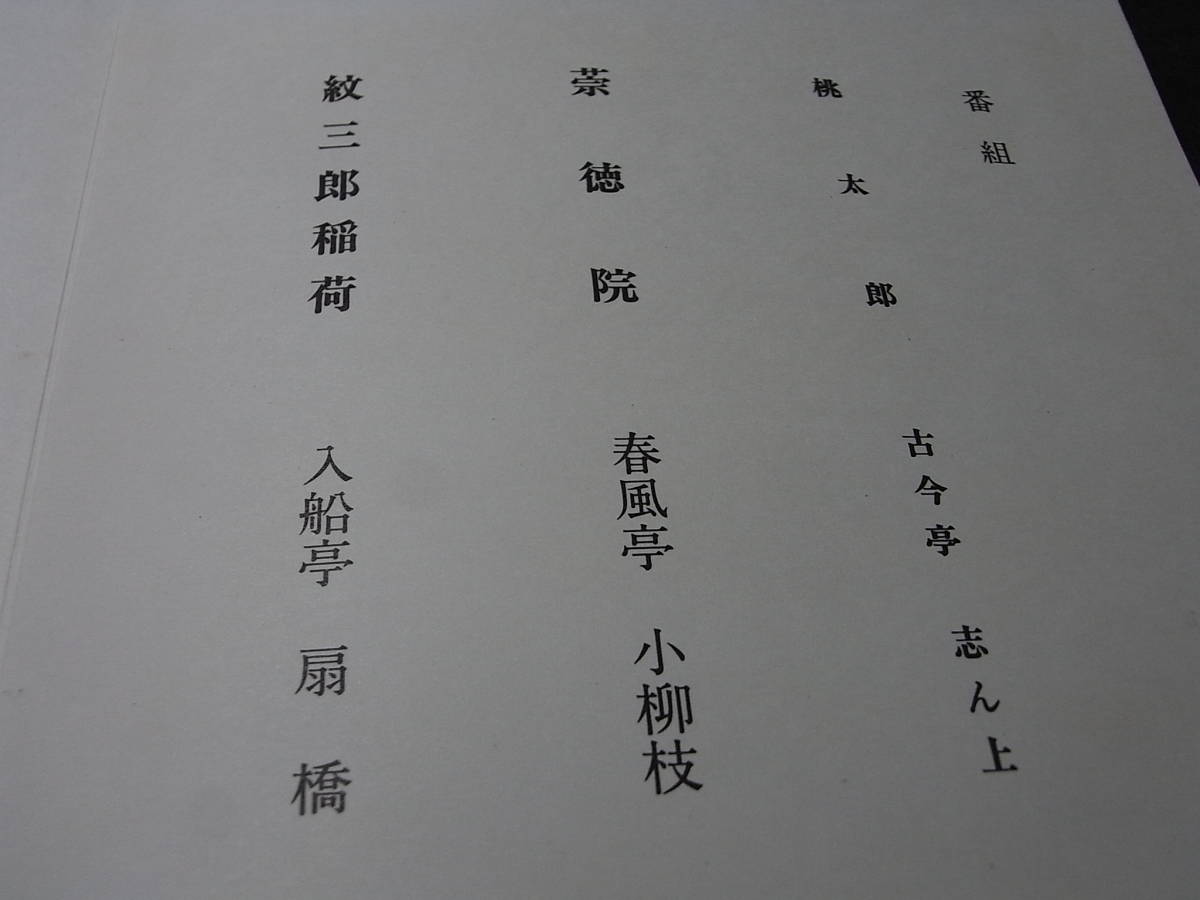 番組
桃太郎 古今亭 志ん上
崇徳院 春風亭 小柳枝
紋三郎稲荷 入船亭 扇橋